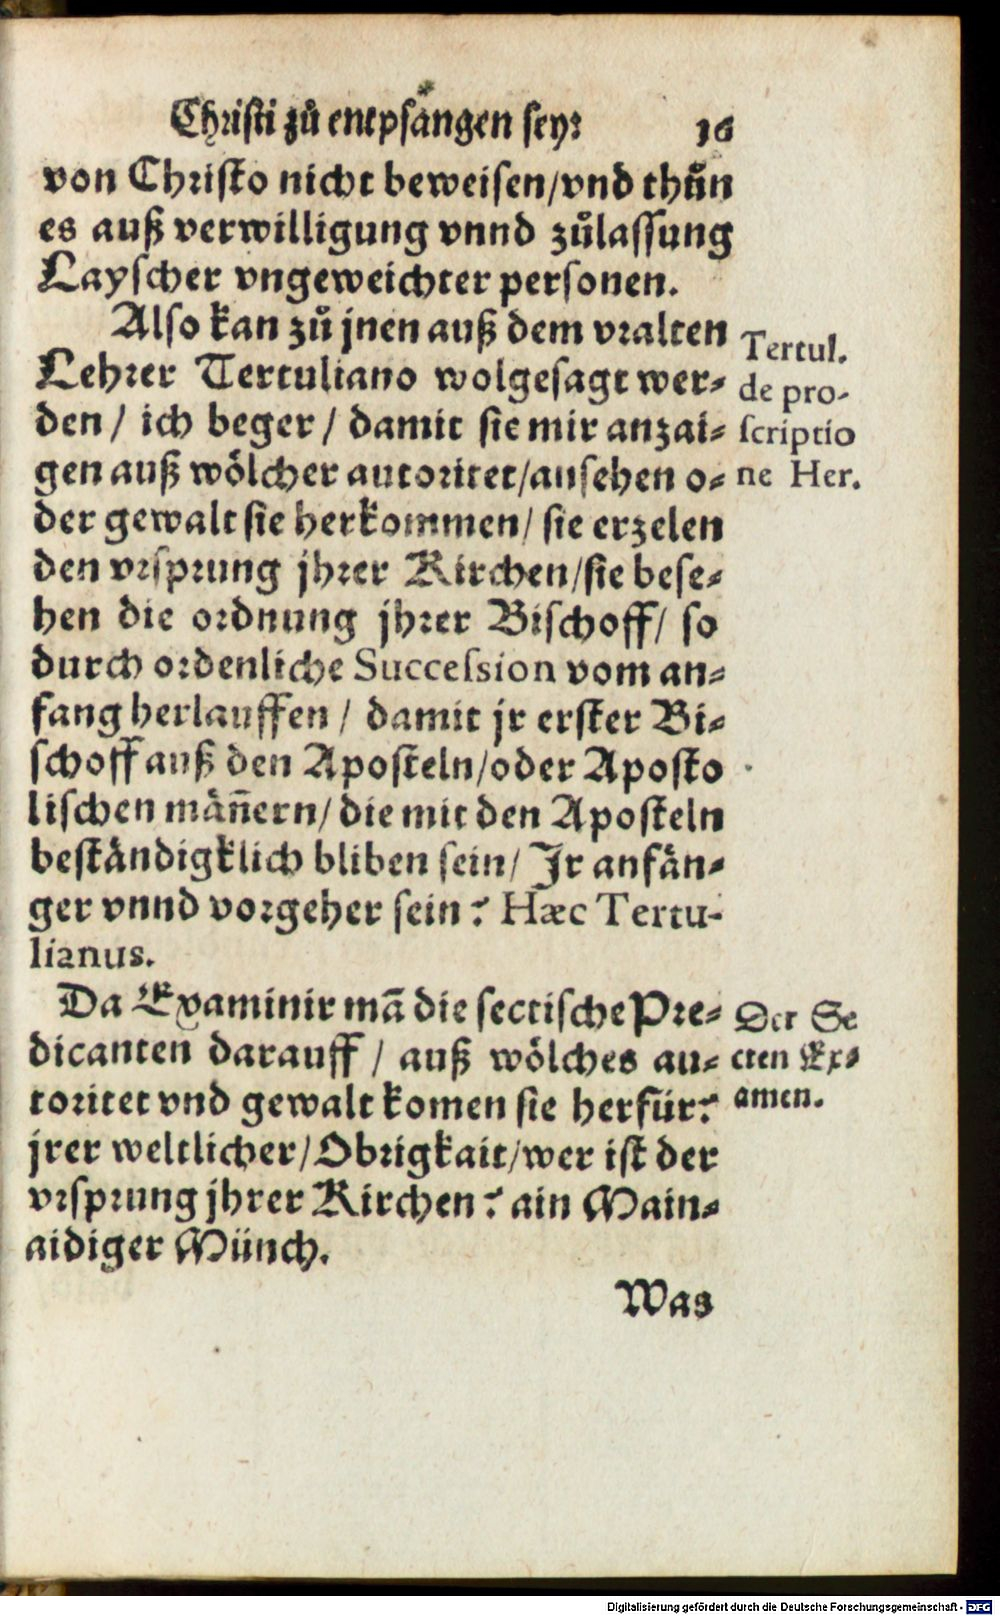 Christi zů entpfangen sey? 16
von Christo nicht beweisen/vnd thůn
es auß verwilligung vnnd zůlassung
Layscher vngeweichter personen.
Also kan zů jnen auß dem vralten
Lehrer Tertuliano wolgesagt wer-
den/ ich beger/ damit sie mir anzai-
gen auß wölcher autoritet/ansehen o-
der gewalt sie herkommen/ sie erzelen
den vrsprung jhrer Kirchen/sie bese-
hen die ordnung jhrer Bischoff/ so
durch ordenliche Succession vom an-
fang herlauffen/ damit jr erster Bi-
schoff auß den Aposteln/oder Aposto
lischen mäñern/ die mit den Aposteln
beständigklich bliben sein/ Jr anfän-
ger vnnd vorgeher sein? Hæc Tertu-
lianus.
Tertul.
de pro-
scriptio
ne Her.
Da Examinir mã die sectische Pre-
dicanten darauff/ auß wölches au-
toritet vnd gewalt komen sie herfür?
jrer weltlicher/Obrigkait/wer ist der
vrsprung jhrer Kirchen? ain Main-
aidiger Münch.
Der Se
cten Ex-
amen.
Was
Digitalisierung gefördert durch die Deutsche Forschungsgemeinschaft - DFG